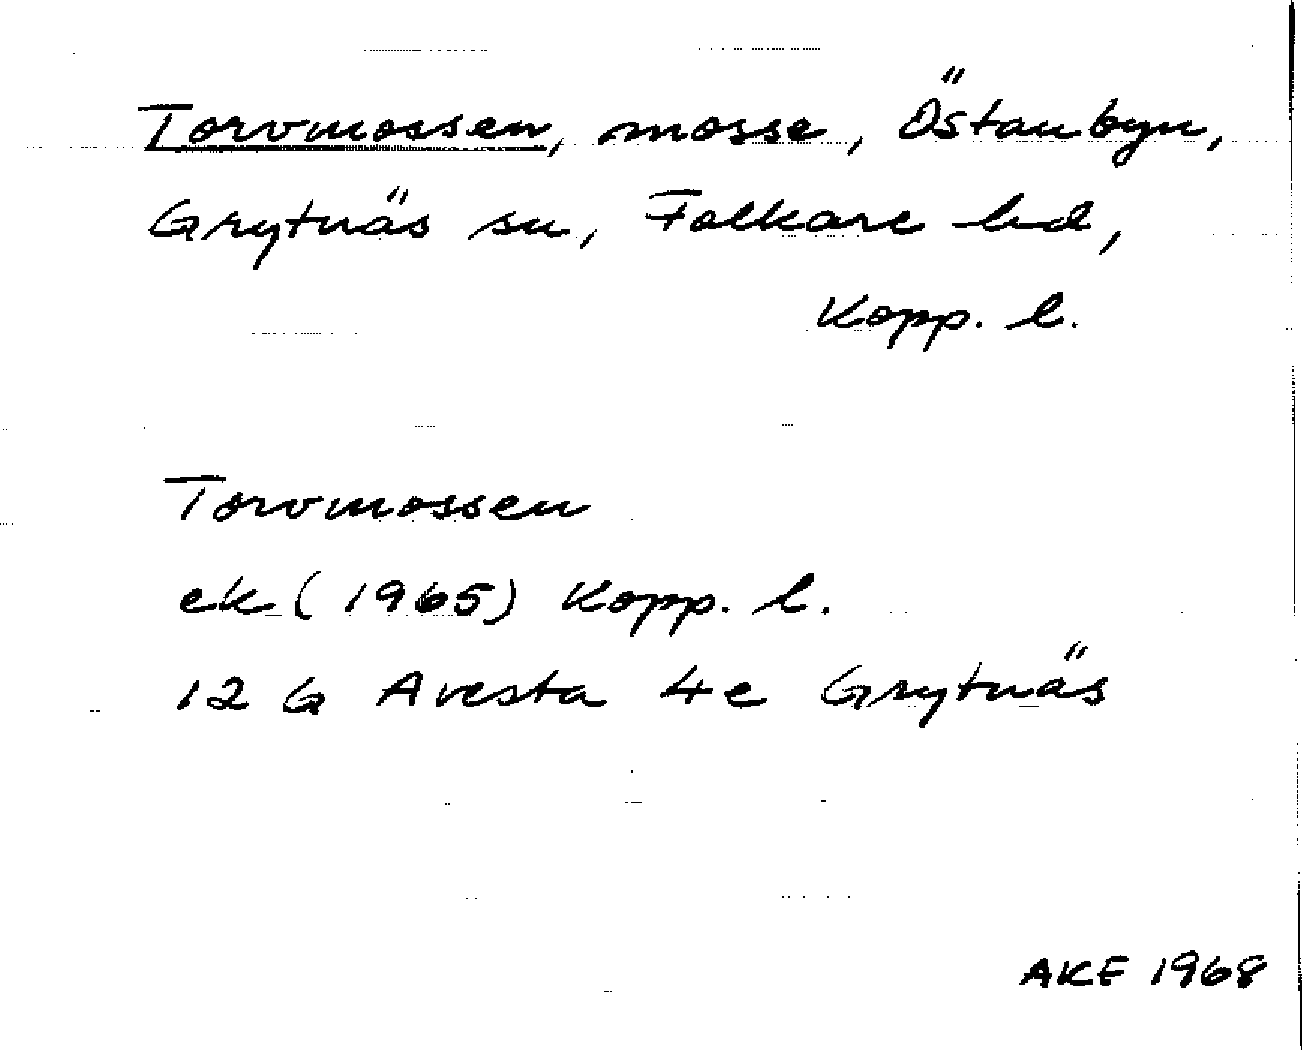 Torvmossen, mosse, Östanbyn,
Grytnäs sn, Folkare hd,
Kopp. l.
Torvmossen
ek (1965) Kopp. l.
12 G Avesta 4e Grytnäs
AKE 1968